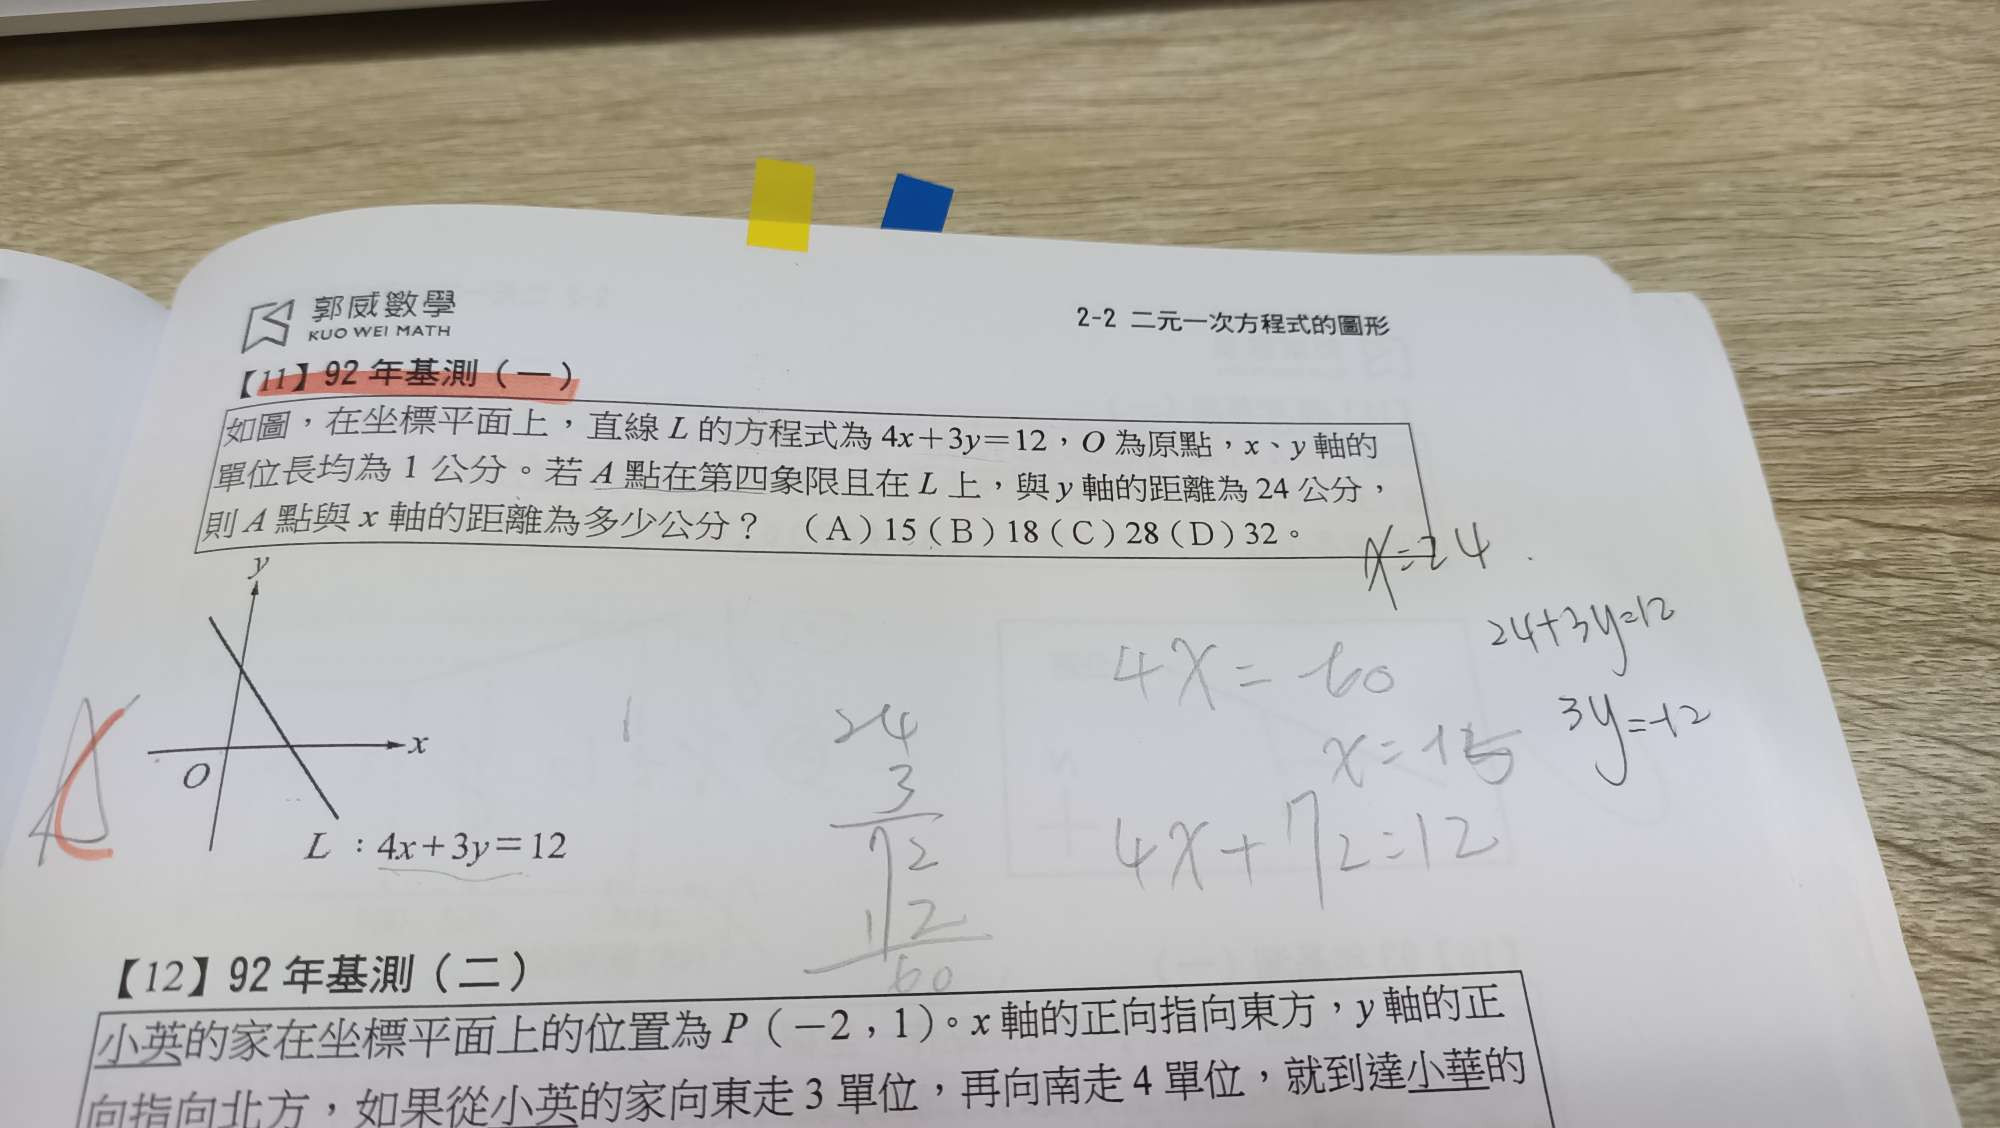 郭威數學
KUO WEI MATH
2-2 二元一次方程式的圖形
【11】92 年基測（一）
如圖，在坐標平面上，直線 L 的方程式為 4x＋3y＝12，O 為原點，x、y 軸的
單位長均為 1 公分。若 A 點在第四象限且在 L 上，與 y 軸的距離為 24 公分，
則 A 點與 x 軸的距離為多少公分？ （A）15（B）18（C）28（D）32。
x=24
24+3y=12
3y=-12
4x=-60
x=-15
4x+72=12
24
3
72
12
60
A
y
x
O
L ：4x＋3y＝12
【12】92 年基測（二）
小英的家在坐標平面上的位置為 P（－2，1）。x 軸的正向指向東方，y 軸的正
向指向北方，如果從小英的家向東走 3 單位，再向南走 4 單位，就到達小華的